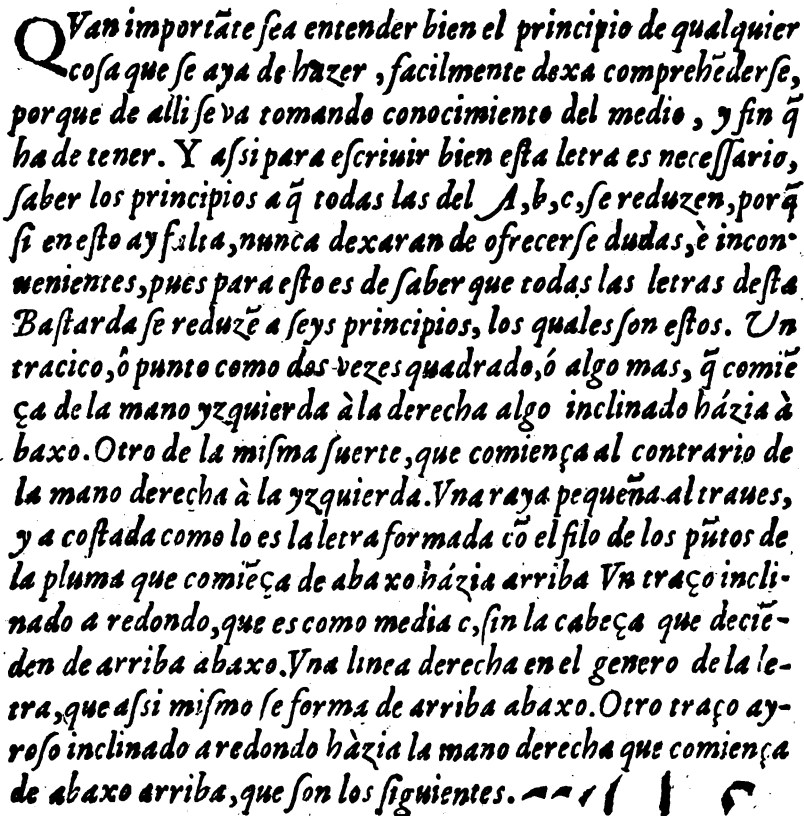 QVan importãte ſea entender bien el principio de qualquier
coſa que ſe aya de hazer, facilmente dexa comprehẽderſe,
porque de alli ſe va tomando conocimiento del medio, y fin q̃
ha de tener. Y aſsi para eſcriuir bien eſta letra es neceſſario,
ſaber los principios a q̃ todas las del A,b,c, ſe reduzen, porq̃
ſi en eſto ay falta, nunca dexaran de ofrecerſe dudas, è incon-
uenientes, pues para eſto es de ſaber que todas las letras deſta
Baſtarda ſe reduzẽ a ſeys principios, los quales ſon eſtos. Un
tracico, ô punto como dos vezes quadrado, ó algo mas, q̃ comiẽ
ça de la mano yzquierda à la derecha algo inclinado házia à
baxo. Otro de la miſma ſuerte, que comiença al contrario de
la mano derecha à la yzquierda. Vna raya pequeña al traues,
y a coſtada como lo es la letra formada cõ el filo de los pũtos de
la pluma que comiẽça de abaxo házia arriba Vn traço incli-
nado a redondo, que es como media c, ſin la cabeça que deciẽ-
den de arriba abaxo. Vna linea derecha en el genero de la le-
tra, que aſsi miſmo ſe forma de arriba abaxo. Otro traço ay-
roſo inclinado a redondo hàzia la mano derecha que comiença
de abaxo arriba, que ſon los ſiguientes.